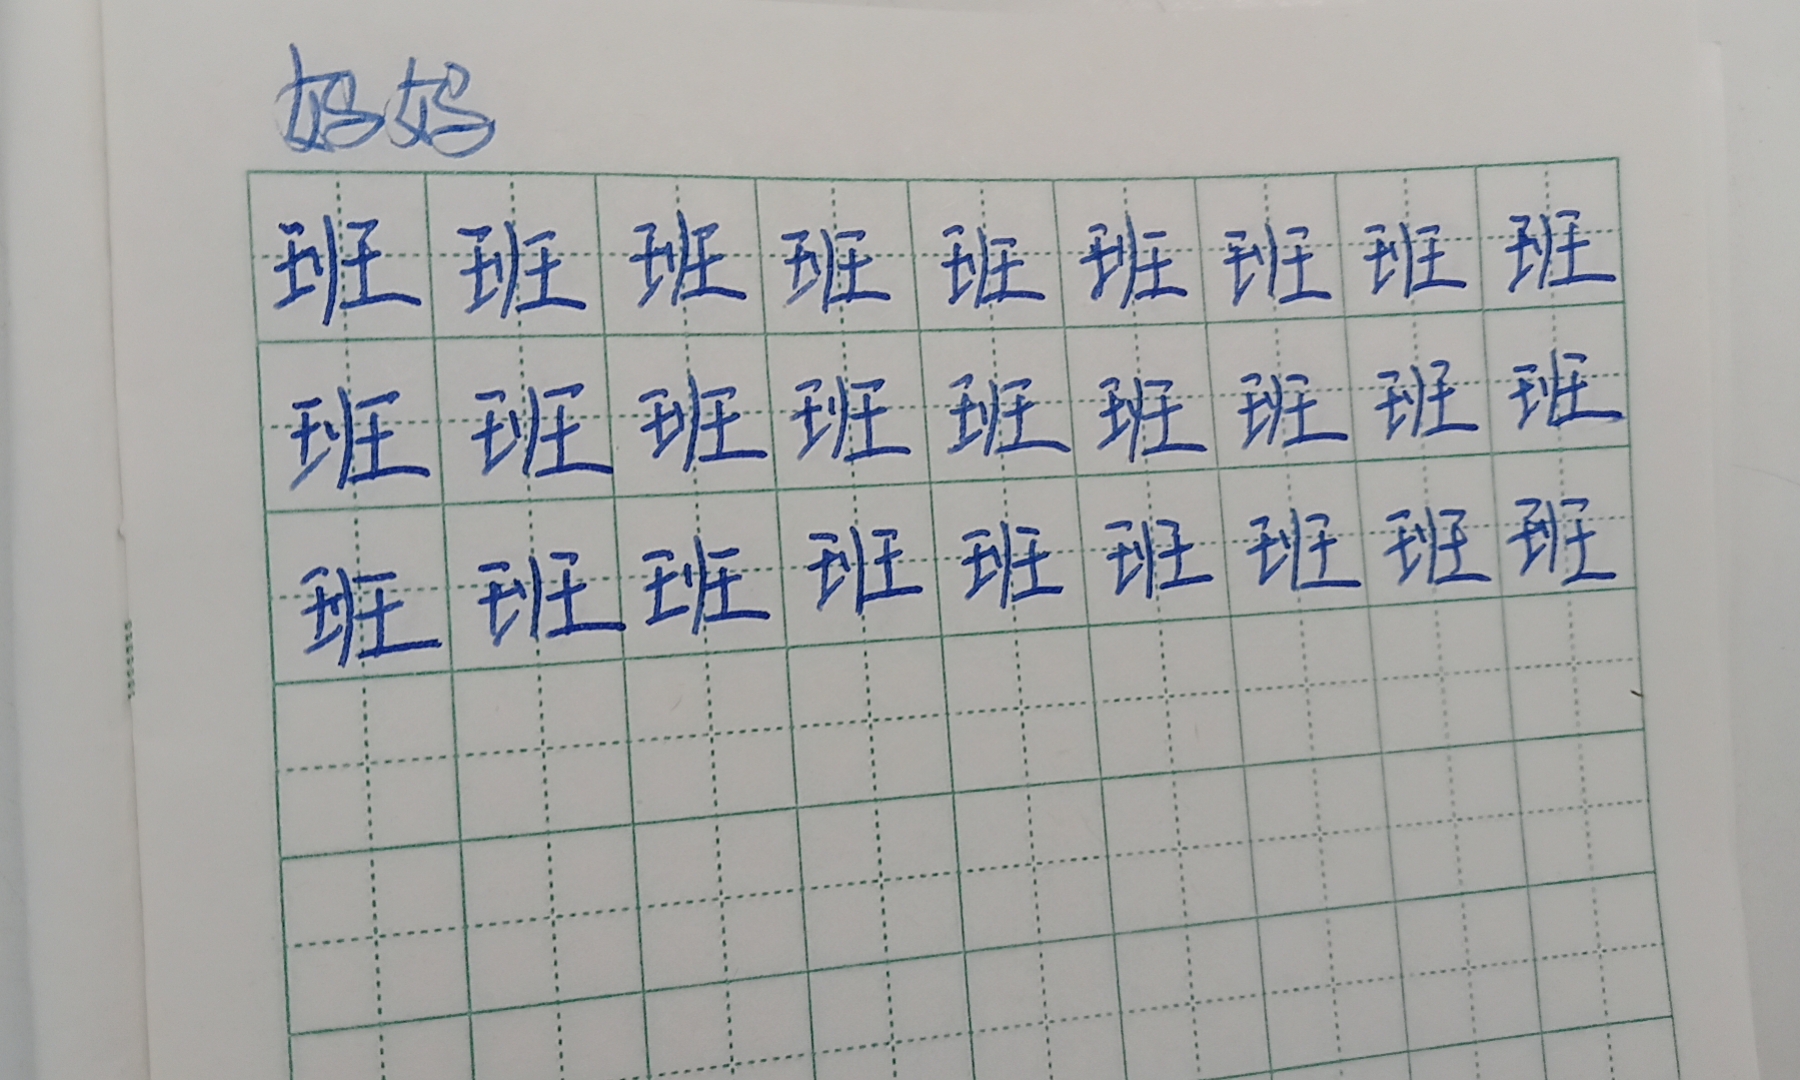 妈妈
班班班班班班班班班
班班班班班班班班班
班班班班班班班班班